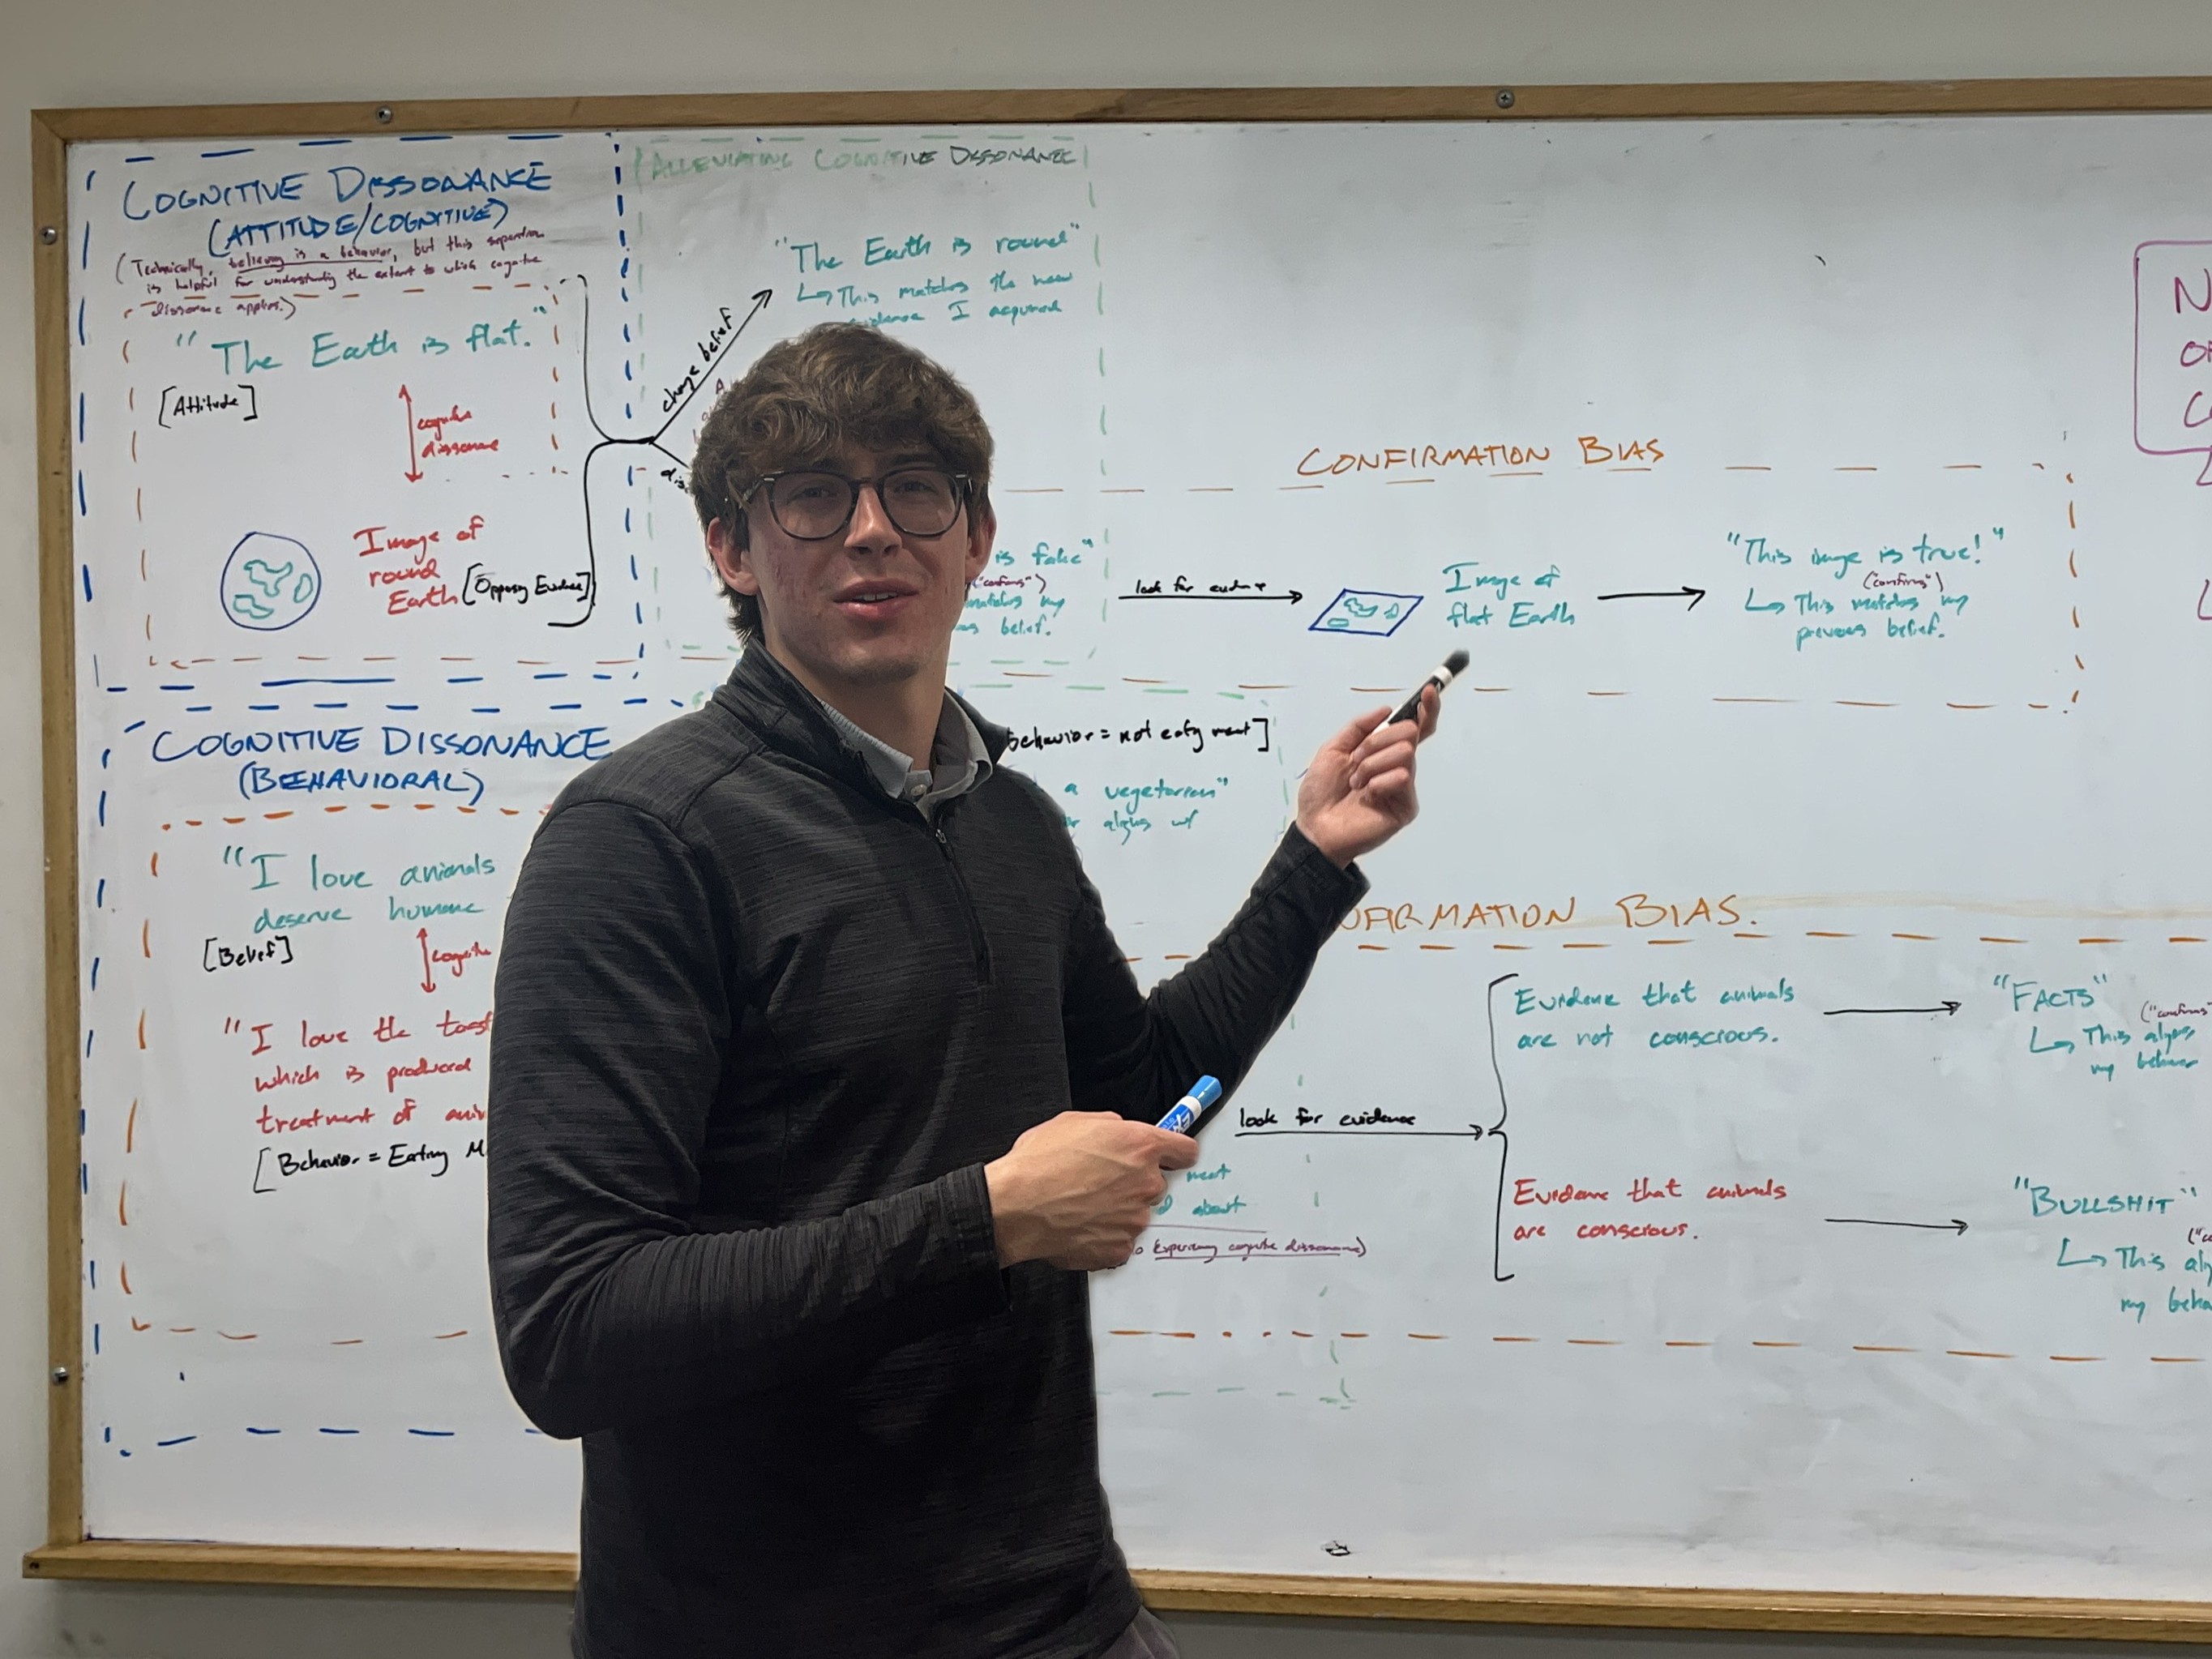 COGNITIVE DISSONANCE
(ATTITUDE/COGNITIVE)
(Technically, believing is a behavior, but this separation
is helpful for understanding the extent to which cognitive
dissonance applies.)
"The Earth is flat."
[Attitude]
cognitive
dissonance
Image of
round
Earth [Opposing Evidence]
(ALLEVIATING COGNITIVE DISSONANCE)
change belief
"The Earth is round"
This matches the new
evidence I acquired
is fake"
("confirms")
matches my
belief.
look for evidence
CONFIRMATION BIAS
Image of
flat Earth
"This image is true!"
("confirms")
This matches my
previous belief.
COGNITIVE DISSONANCE
(BEHAVIORAL)
"I love animals
deserve humane
[Belief]
cognitive
"I love the
which is produced
treatment of
[Behavior = Eating
Behavior = not eating meat]
a vegetarian"
aligns w/
meat
about
experiencing cognitive dissonance)
look for evidence
BIAS.
Evidence that animals
are not conscious.
"FACTS"
("confirms"
This aligns
my behavior
Evidence that animals
are conscious.
"BULLSHIT"
This
my